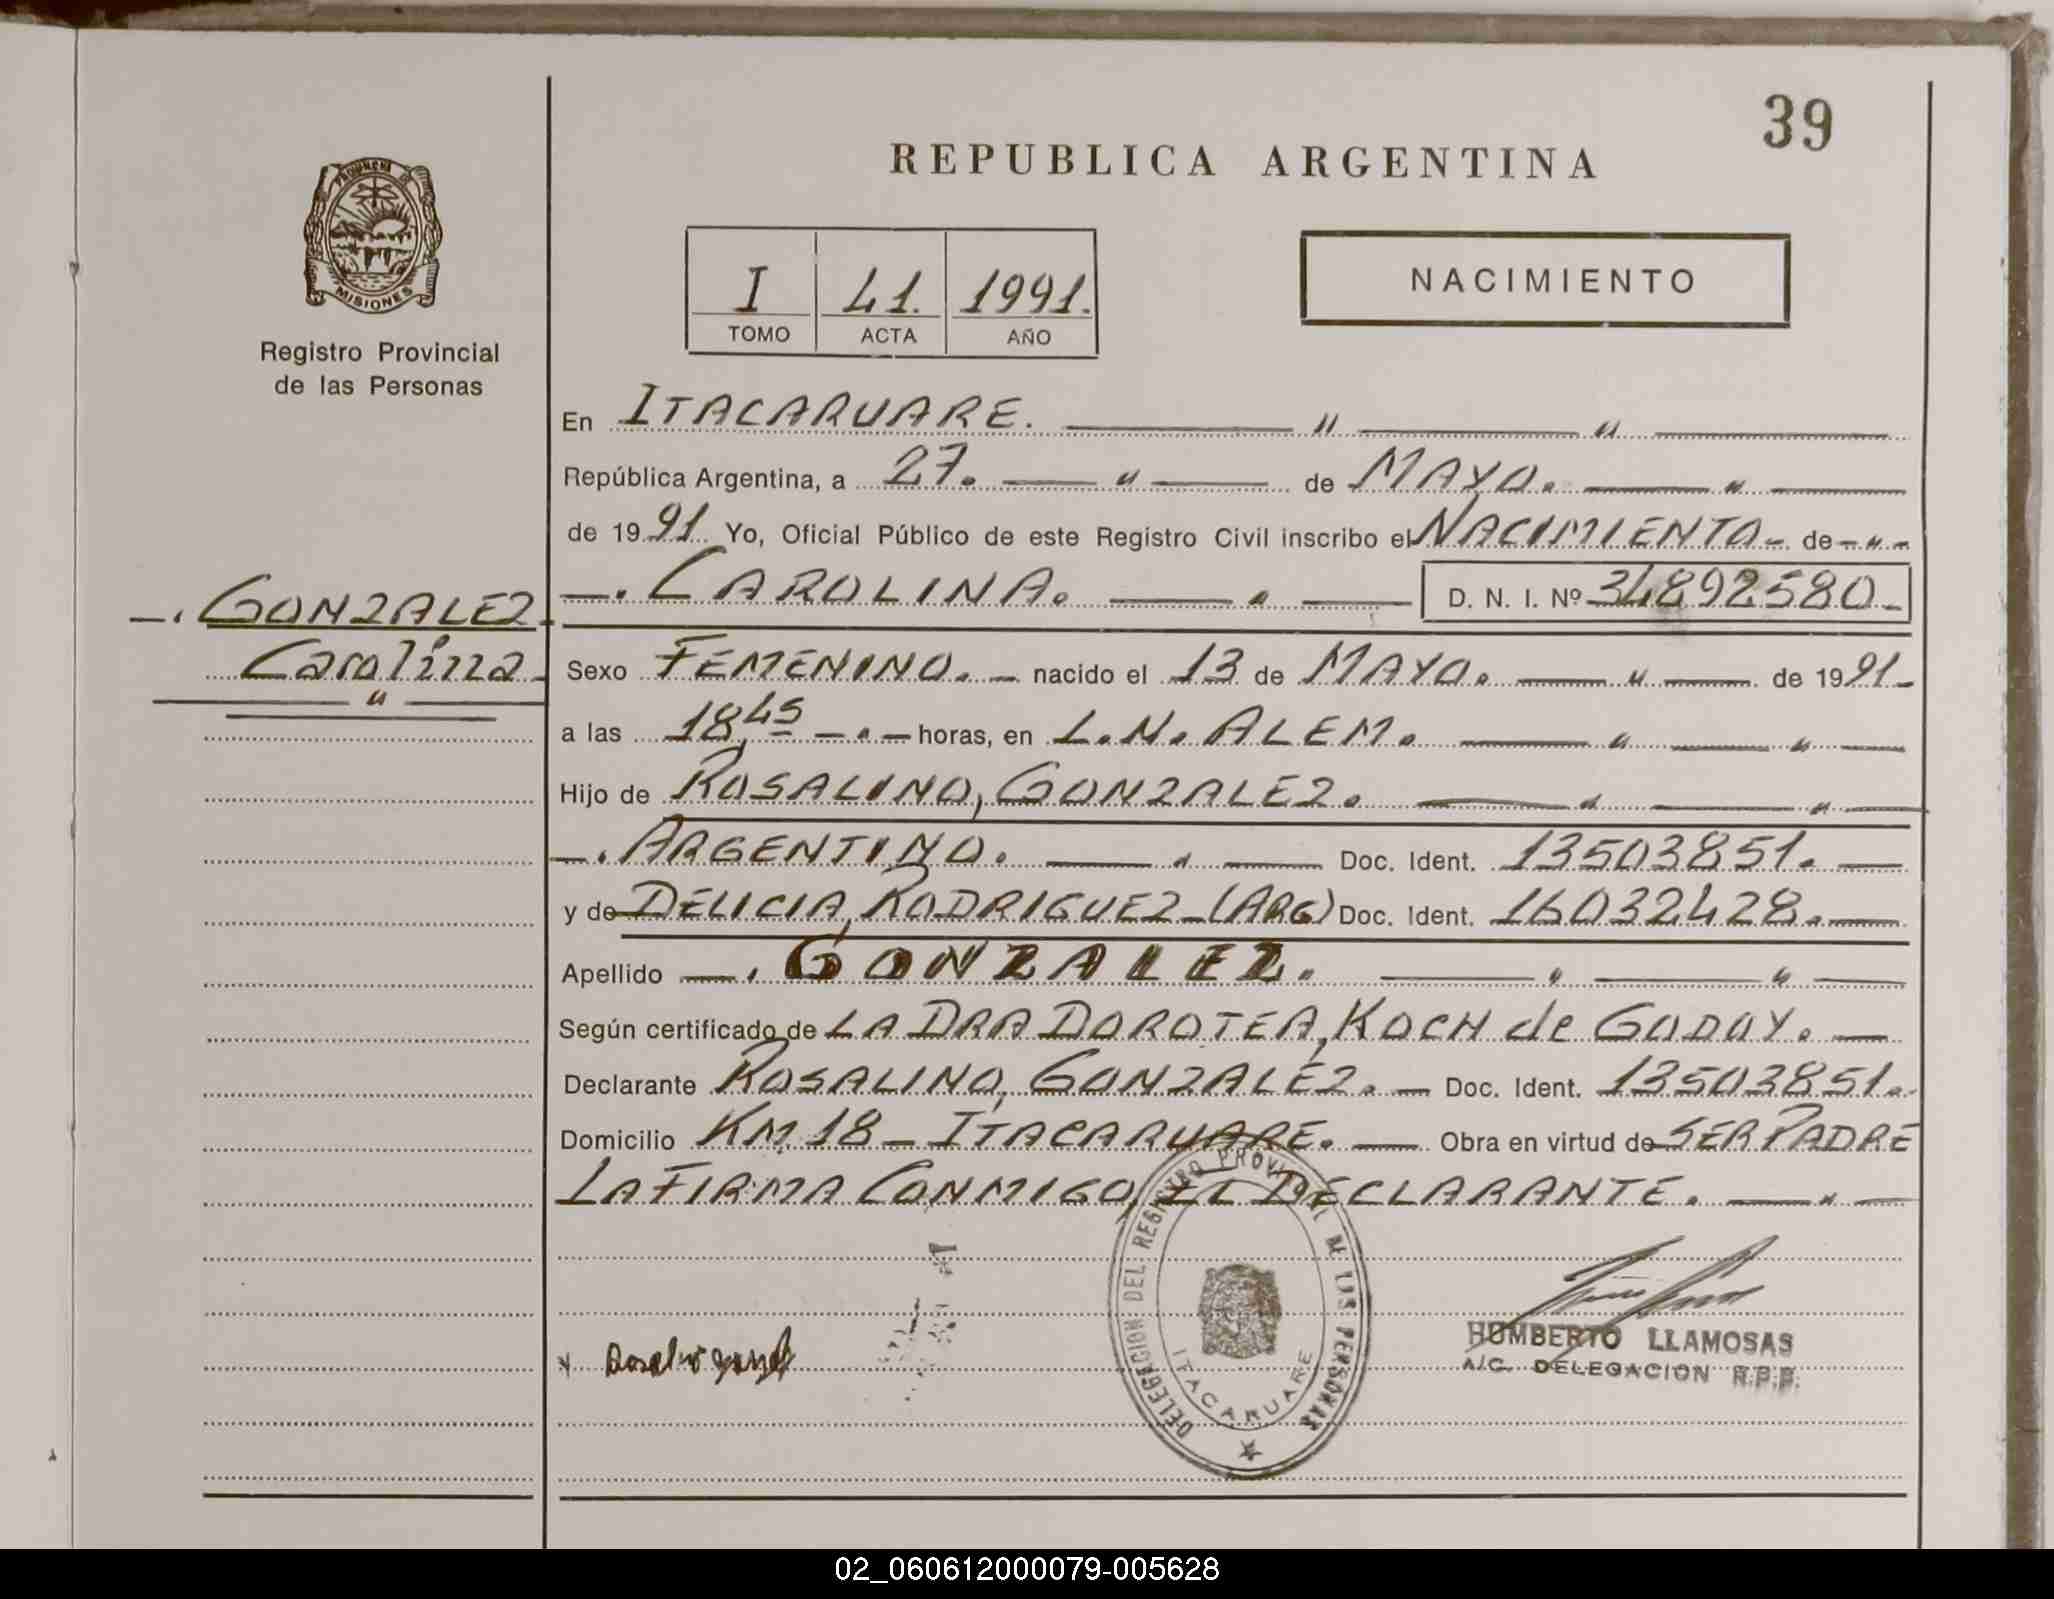 39
REPUBLICA ARGENTINA
PROVINCIA DE
MISIONES
Registro Provincial
de las Personas
I 41. 1991.
TOMO ACTA AÑO
NACIMIENTO
En ITACARUARE. " "
República Argentina, a 27. " de MAYO. "
de 1991 Yo, Oficial Público de este Registro Civil inscribo el NACIMIENTO - de - " -
GONZALEZ
Carolina
"
CAROLINA. " D. N. I. Nº 34892580
Sexo FEMENINO. nacido el 13 de MAYO. " de 1991
a las 18,45 horas, en L. N. ALEM. " "
Hijo de ROSALINO, GONZALEZ. " "
ARGENTINO. " Doc. Ident. 13503851.
y de DELICIA, RODRIGUEZ - (ARG) Doc. Ident. 16032428.
Apellido GONZALEZ. " "
Según certificado de LA DRA DOROTEA, KOCH de GODOY.
Declarante ROSALINO, GONZALEZ. Doc. Ident. 13503851.
Domicilio KM 18 - ITACARUARE. Obra en virtud de SER PADRE
LA FIRMA CONMIGO, EL DECLARANTE. "
DELEGACION DEL REGISTRO PROVINCIAL DE LAS PERSONAS
ITACARUARE
HUMBERTO LLAMOSAS
A/C. DELEGACION R.P.P.
02_060612000079-005628